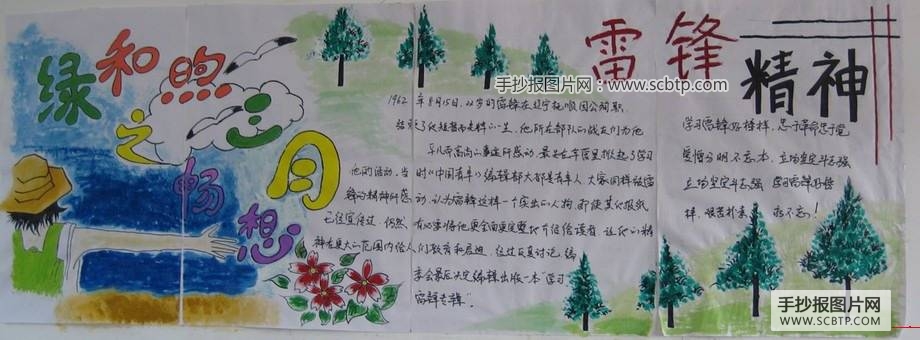 绿和煦
之心
畅想月
雷锋
精神
手抄报图片网
www.scbtp.com
1962年8月15日，22岁的雷锋在辽宁抚顺因公殉职
结束了他短暂而光辉的一生，他所在部队的战友们为他
平凡而高尚的事迹所感动，最先在军营里掀起了学习
他的活动，当时《中国青年》编辑部大都是青年人，大家同样被雷
锋的精神所感动，认为雷锋这样一个突出的人物，即使其他报纸
已经宣传过，仍然有必要将他更全面更完整地介绍给读者，让他的精
神在更大的范围内给人们教育和启迪，经过反复讨论，编
委会最后决定编辑出版一本"学习
雷锋专辑"。
学习雷锋好榜样，忠于革命忠于党
爱憎分明不忘本，立场坚定斗志强
立场坚定斗志强 学习雷锋好榜
样，艰苦朴素 永不忘！
手抄报图片网
WWW.SCBTP.COM